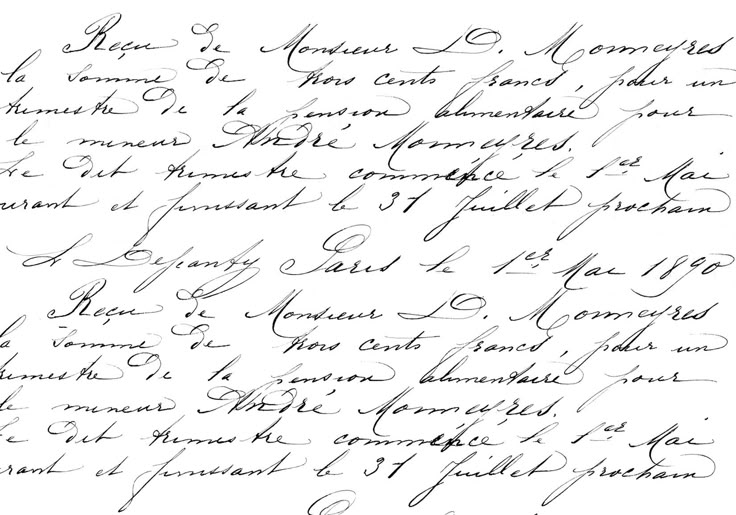 Reçu de Monsieur D. Monneyres
la somme de trois cents francs, pour un
trimestre de la pension alimentaire pour
le mineur André Monneyres.
Le dit trimestre commencé le 1er Mai
ourant et finissant le 31 Juillet prochain
Paris le 1er Mai 1890
Reçu de Monsieur D. Monneyres
la somme de trois cents francs, pour un
rimestre de la pension alimentaire pour
le mineur André Monneyres.
Le dit trimestre commencé le 1er Mai
rant et finissant le 31 Juillet prochain